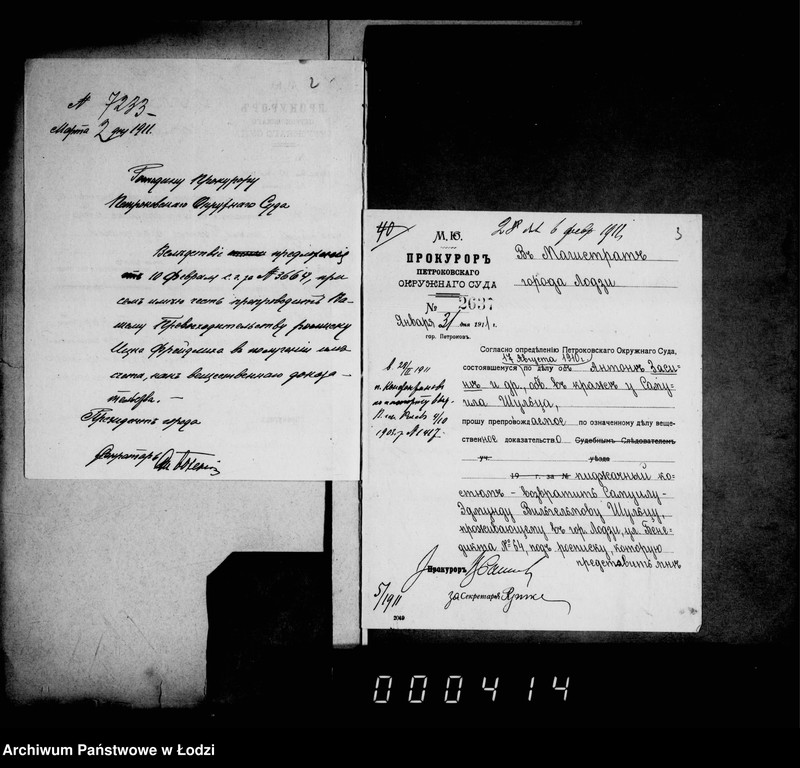 2
№ 7233
Марта 2 дня 1911.
Господину Прокурору
Петроковскаго Окружнаго Суда
Вслѣдствіе предложенія
отъ 10 Февраля с. г. за № 3664, при
семъ имѣю честь препроводить Ва-
шему Превосходительству росписку
Ицка Фрейдлиха въ полученіи
какъ вещественнаго доказа-
тельства. —
Президентъ города
Секретарь
40
28 6 февр 1911
3
М. Ю.
ПРОКУРОРЪ
ПЕТРОКОВСКАГО
ОКРУЖНАГО СУДА
№ 2637
Января 31 дня 1911 г.
гор. Петроковъ.
Въ Магистратъ
города Лодзи
Согласно опредѣленію Петроковскаго Окружнаго Суда,
17 Августа 1910 г.
состоявшемуся по дѣлу объ Антонѣ Заси-
нѣ и др., обв. въ кражѣ у Саму-
ила Шульца,
прошу препровождаемое по означенному дѣлу веще-
ственное доказательство Судебнымъ Слѣдователемъ
уч. уѣзда
19 г. за № пиджачный ко-
стюмъ – возвратить Самуилу-
Эдмунду Вильгельмову Шульцу,
проживающему въ гор. Лодзи, ул. Бене-
дикта № 64, подъ росписку, которую
представить мнѣ
Прокуроръ
за Секретаря
5/1911
2049
000414
Archiwum Państwowe w Łodzi